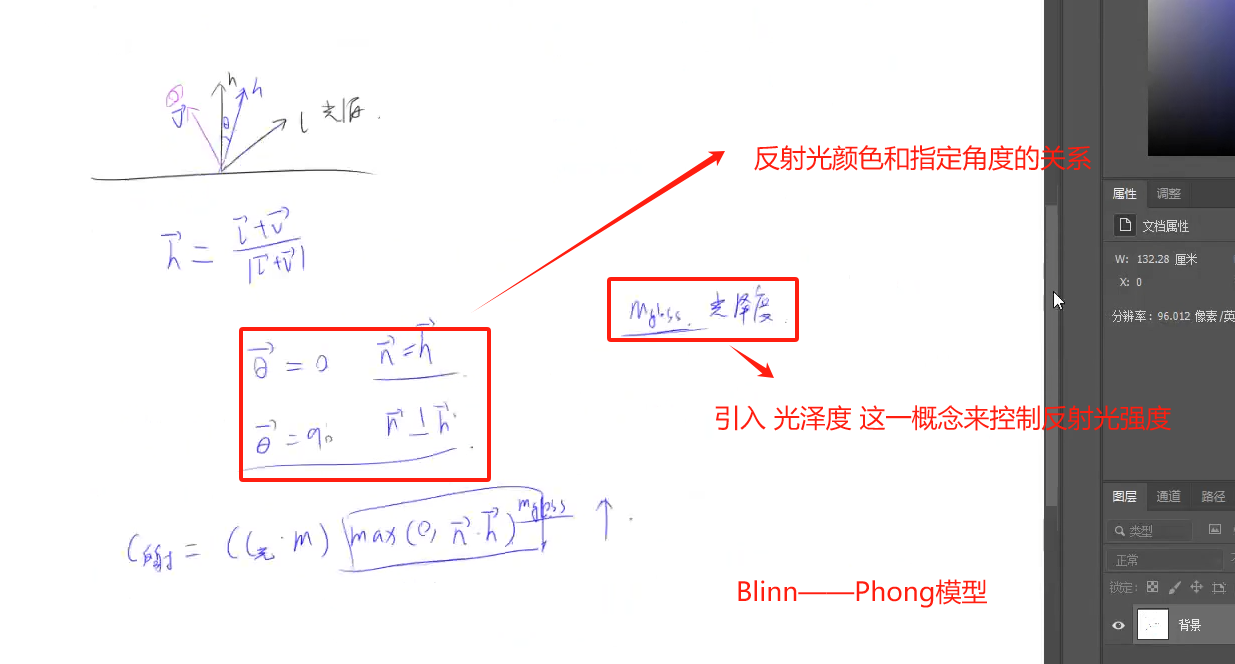 n
h
θ
l 光源.
v
反射光颜色和指定角度的关系
h = (l+v) / |l+v|
m_gloss. 光泽度.
θ = 0    n = h.
θ = 90    n ⊥ h.
引入 光泽度 这一概念来控制反射光强度
C反射 = (C光·m) max(0, n·h)^m_gloss ↑ .
Blinn——Phong模型
属性 调整
文档属性
W: 132.28 厘米
X: 0
分辨率: 96.012 像素/英
图层 通道 路径
类型
正常
锁定:
背景